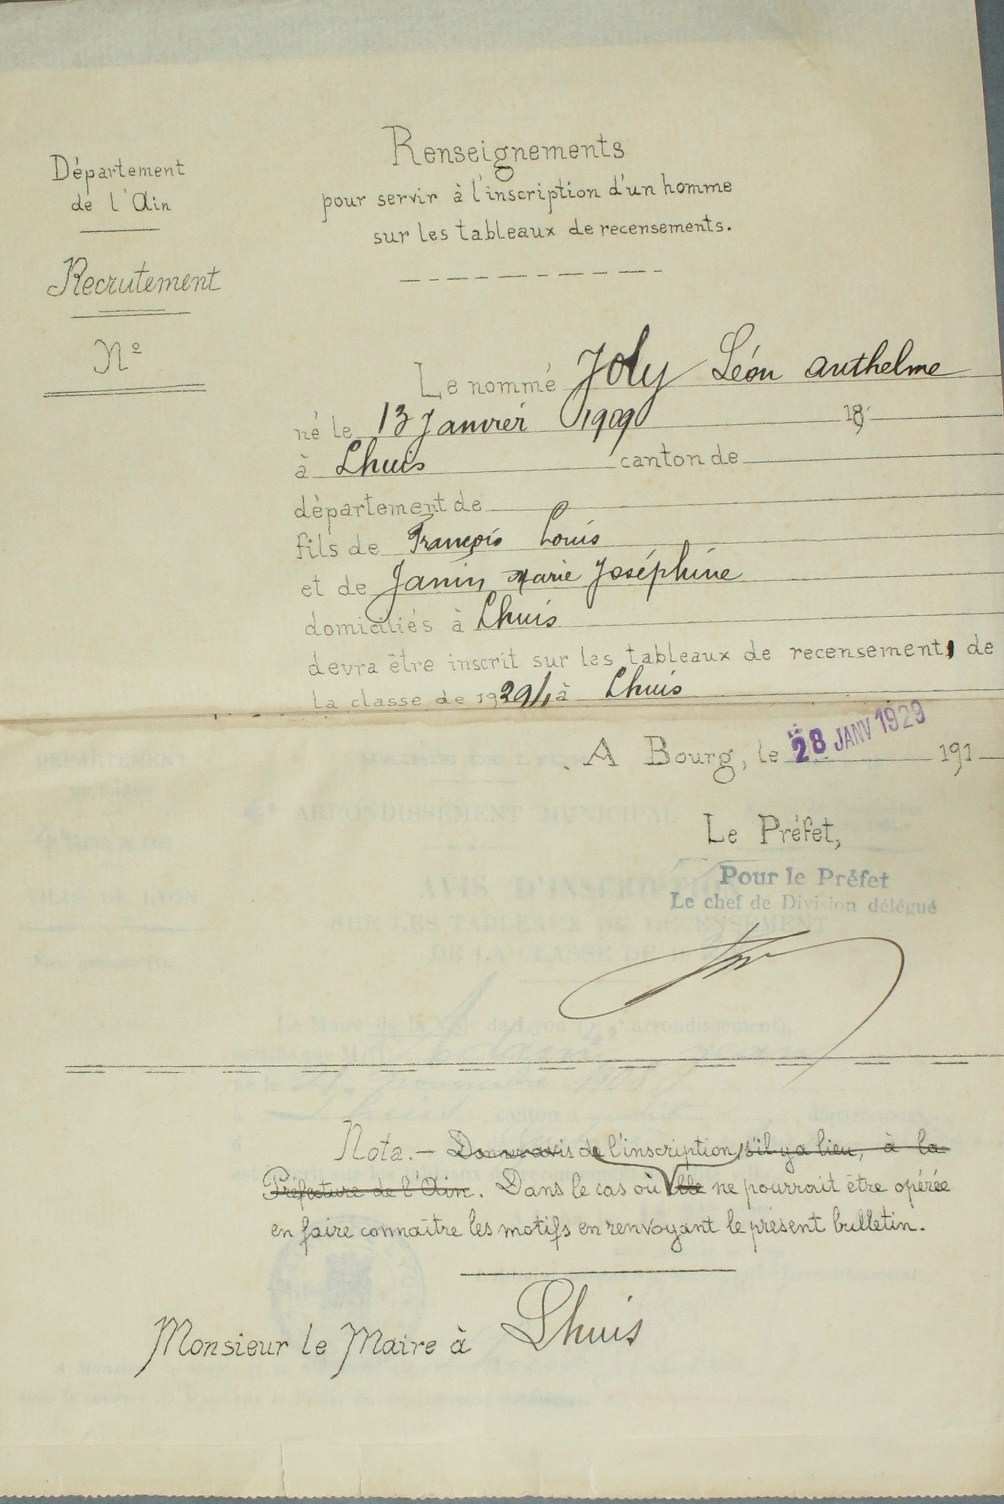 Département
de l'Ain
Recrutement
Nº
Renseignements
pour servir à l'inscription d'un homme
sur les tableaux de recensements.
Le nommé Joly Léon Anthelme
né le 13 Janvier 1909 18
à Lhuis canton de
département de
fils de François Louis
et de Janin Marie Joséphine
domiciliés à Lhuis
devra être inscrit sur les tableaux de recensement, de
la classe de 1929/1 à Lhuis
A Bourg, le 28 JANV 1929 191
Le Préfet,
Pour le Préfet
Le chef de Division délégué
Nota. — Donner avis de l'inscription, s'il y a lieu, à la
Préfecture de l'Ain. Dans le cas où elle ne pourrait être opérée
en faire connaître les motifs en renvoyant le présent bulletin.
Monsieur le Maire à Lhuis